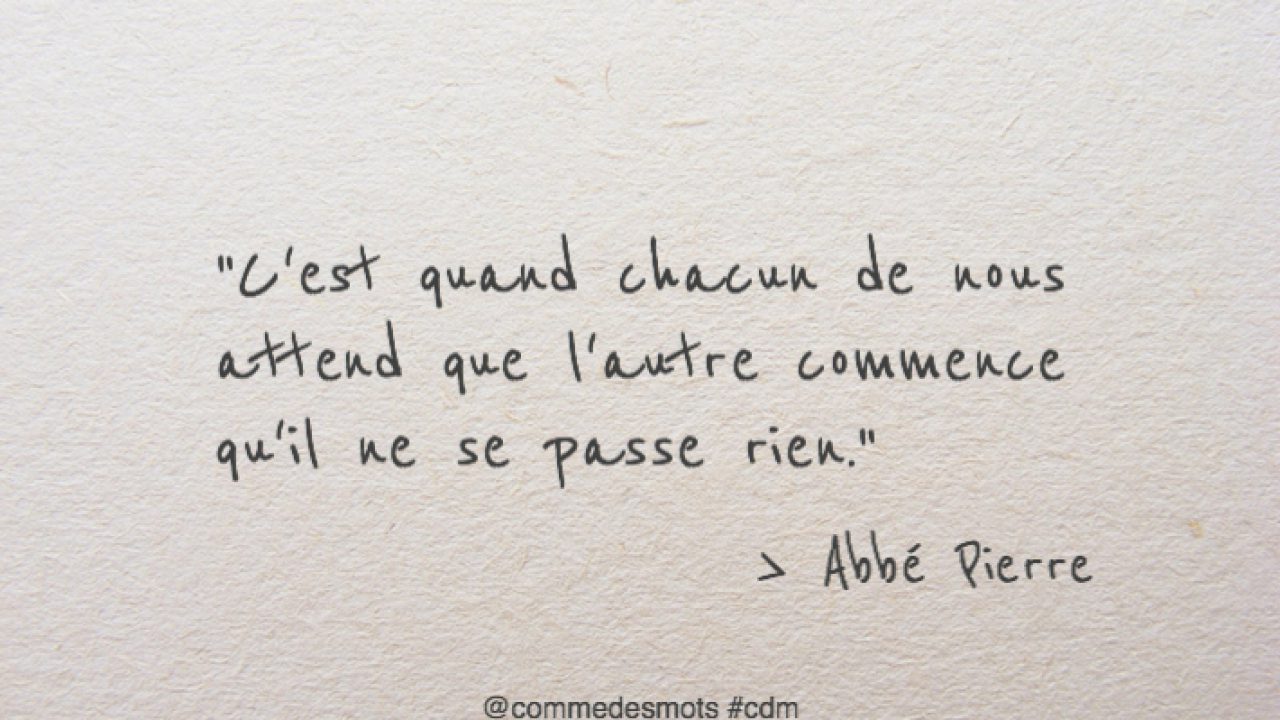 "C'est quand chacun de nous
attend que l'autre commence
qu'il ne se passe rien."
> Abbé Pierre
@commedesmots #cdm